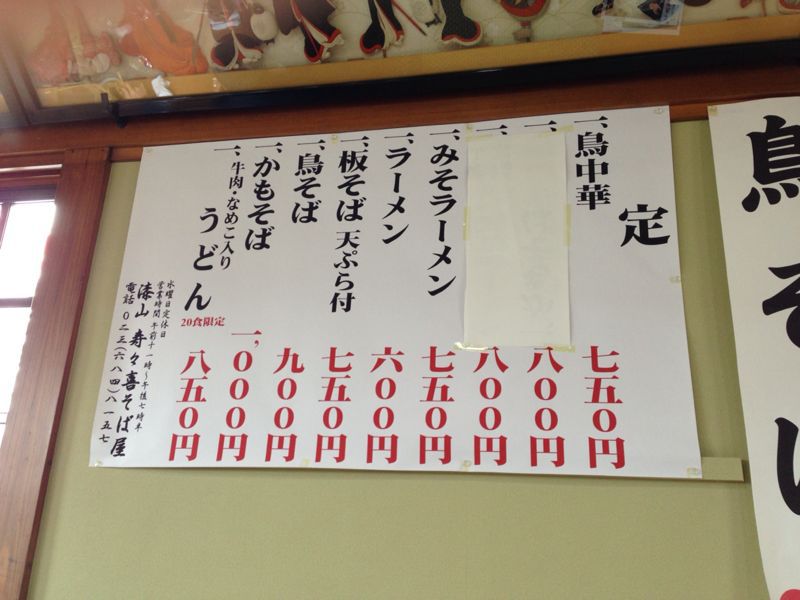 鳥そば
定
一、鳥中華 七五〇円
一、 八〇〇円
一、 八〇〇円
一、みそラーメン 七五〇円
一、ラーメン 六〇〇円
一、板そば 天ぷら付 七五〇円
一、鳥そば 九〇〇円
一、かもそば 一、〇〇〇円
一、牛肉・なめこ入り
うどん 20食限定 八五〇円
水曜日定休日
営業時間 午前十一時～午後七時半
漆山 寿々喜そば屋
電話 〇二三(六八四)八一五七